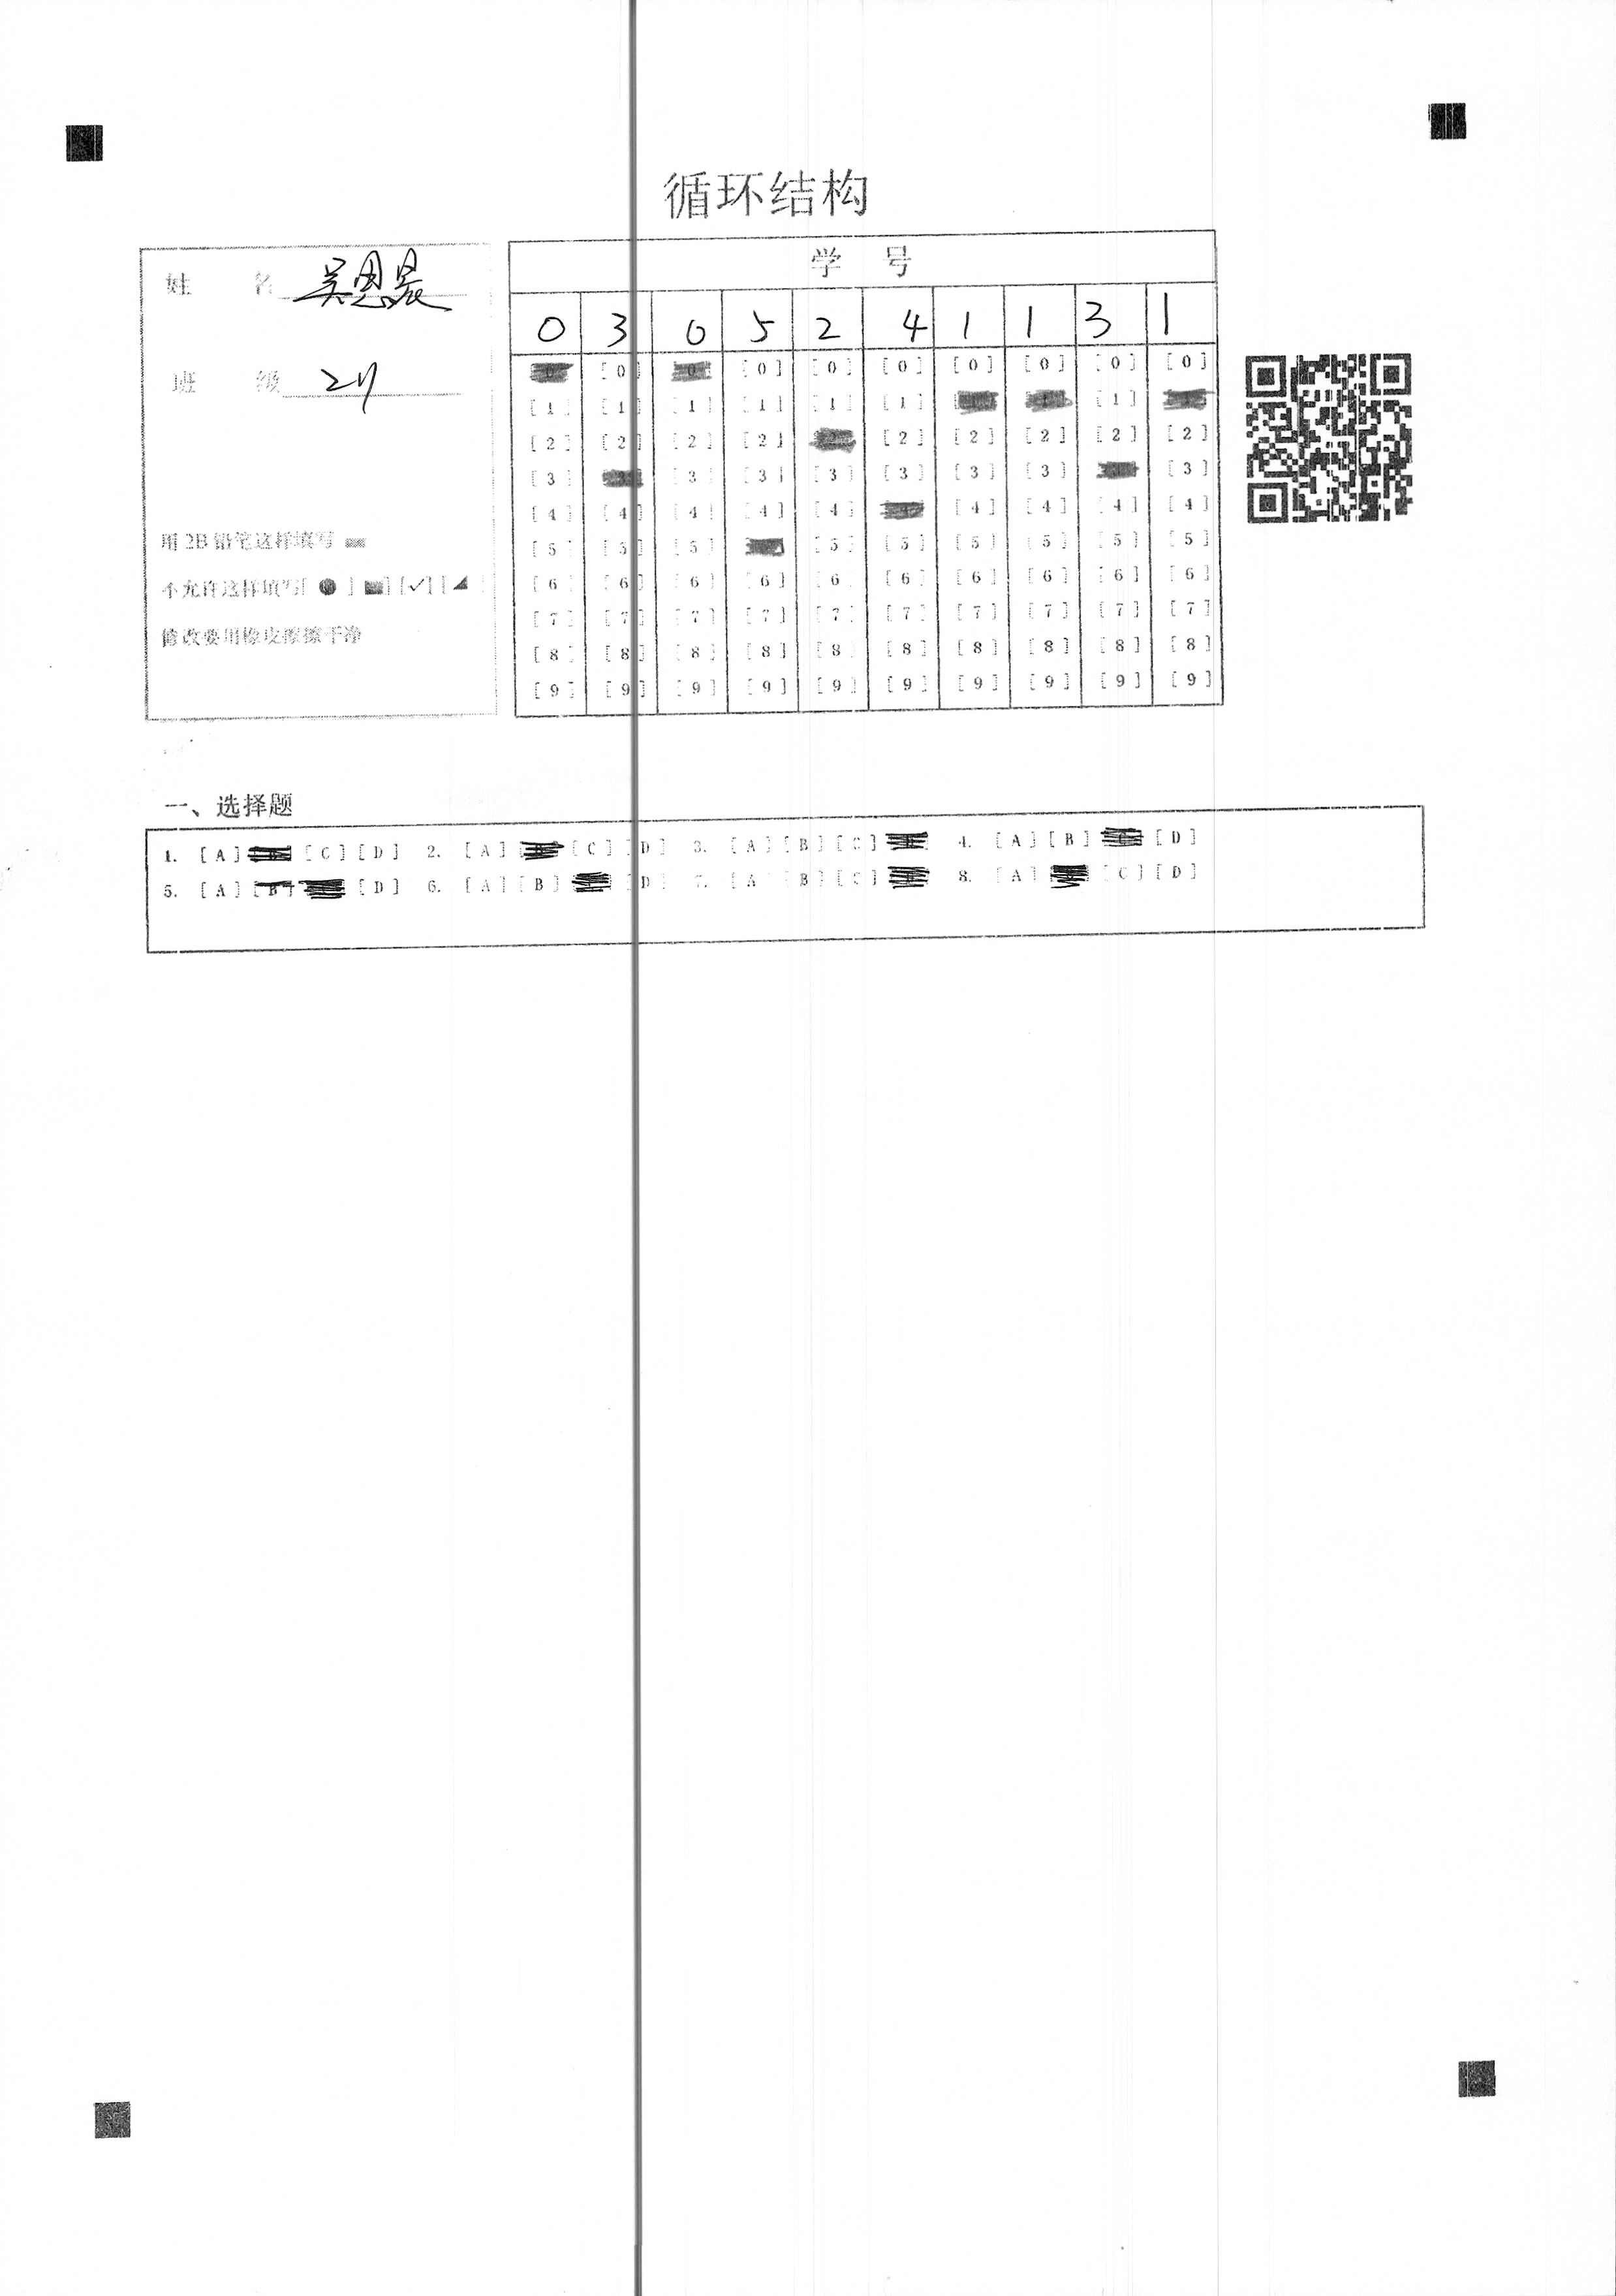 循环结构
姓 名 吴思晨
班 级 24
用2B铅笔这样填写
不允许这样填写[●][ ][✓][◢]
修改要用橡皮擦擦干净
学 号
0 3 0 5 2 4 1 1 3 1
[0] [0] [0] [0] [0] [0] [0] [0]
[1] [1] [1] [1] [1] [1] [1]
[2] [2] [2] [2] [2] [2] [2] [2] [2]
[3] [3] [3] [3] [3] [3] [3] [3]
[4] [4] [4] [4] [4] [4] [4] [4] [4]
[5] [5] [5] [5] [5] [5] [5] [5] [5]
[6] [6] [6] [6] [6] [6] [6] [6] [6] [6]
[7] [7] [7] [7] [7] [7] [7] [7] [7] [7]
[8] [8] [8] [8] [8] [8] [8] [8] [8] [8]
[9] [9] [9] [9] [9] [9] [9] [9] [9] [9]
一、选择题
1. [A] [C] [D] 2. [A] [C] [D] 3. [A] [B] [C] 4. [A] [B] [D]
5. [A] [B] [D] 6. [A] [B] [D] 7. [A] [B] [C] 8. [A] [C] [D]